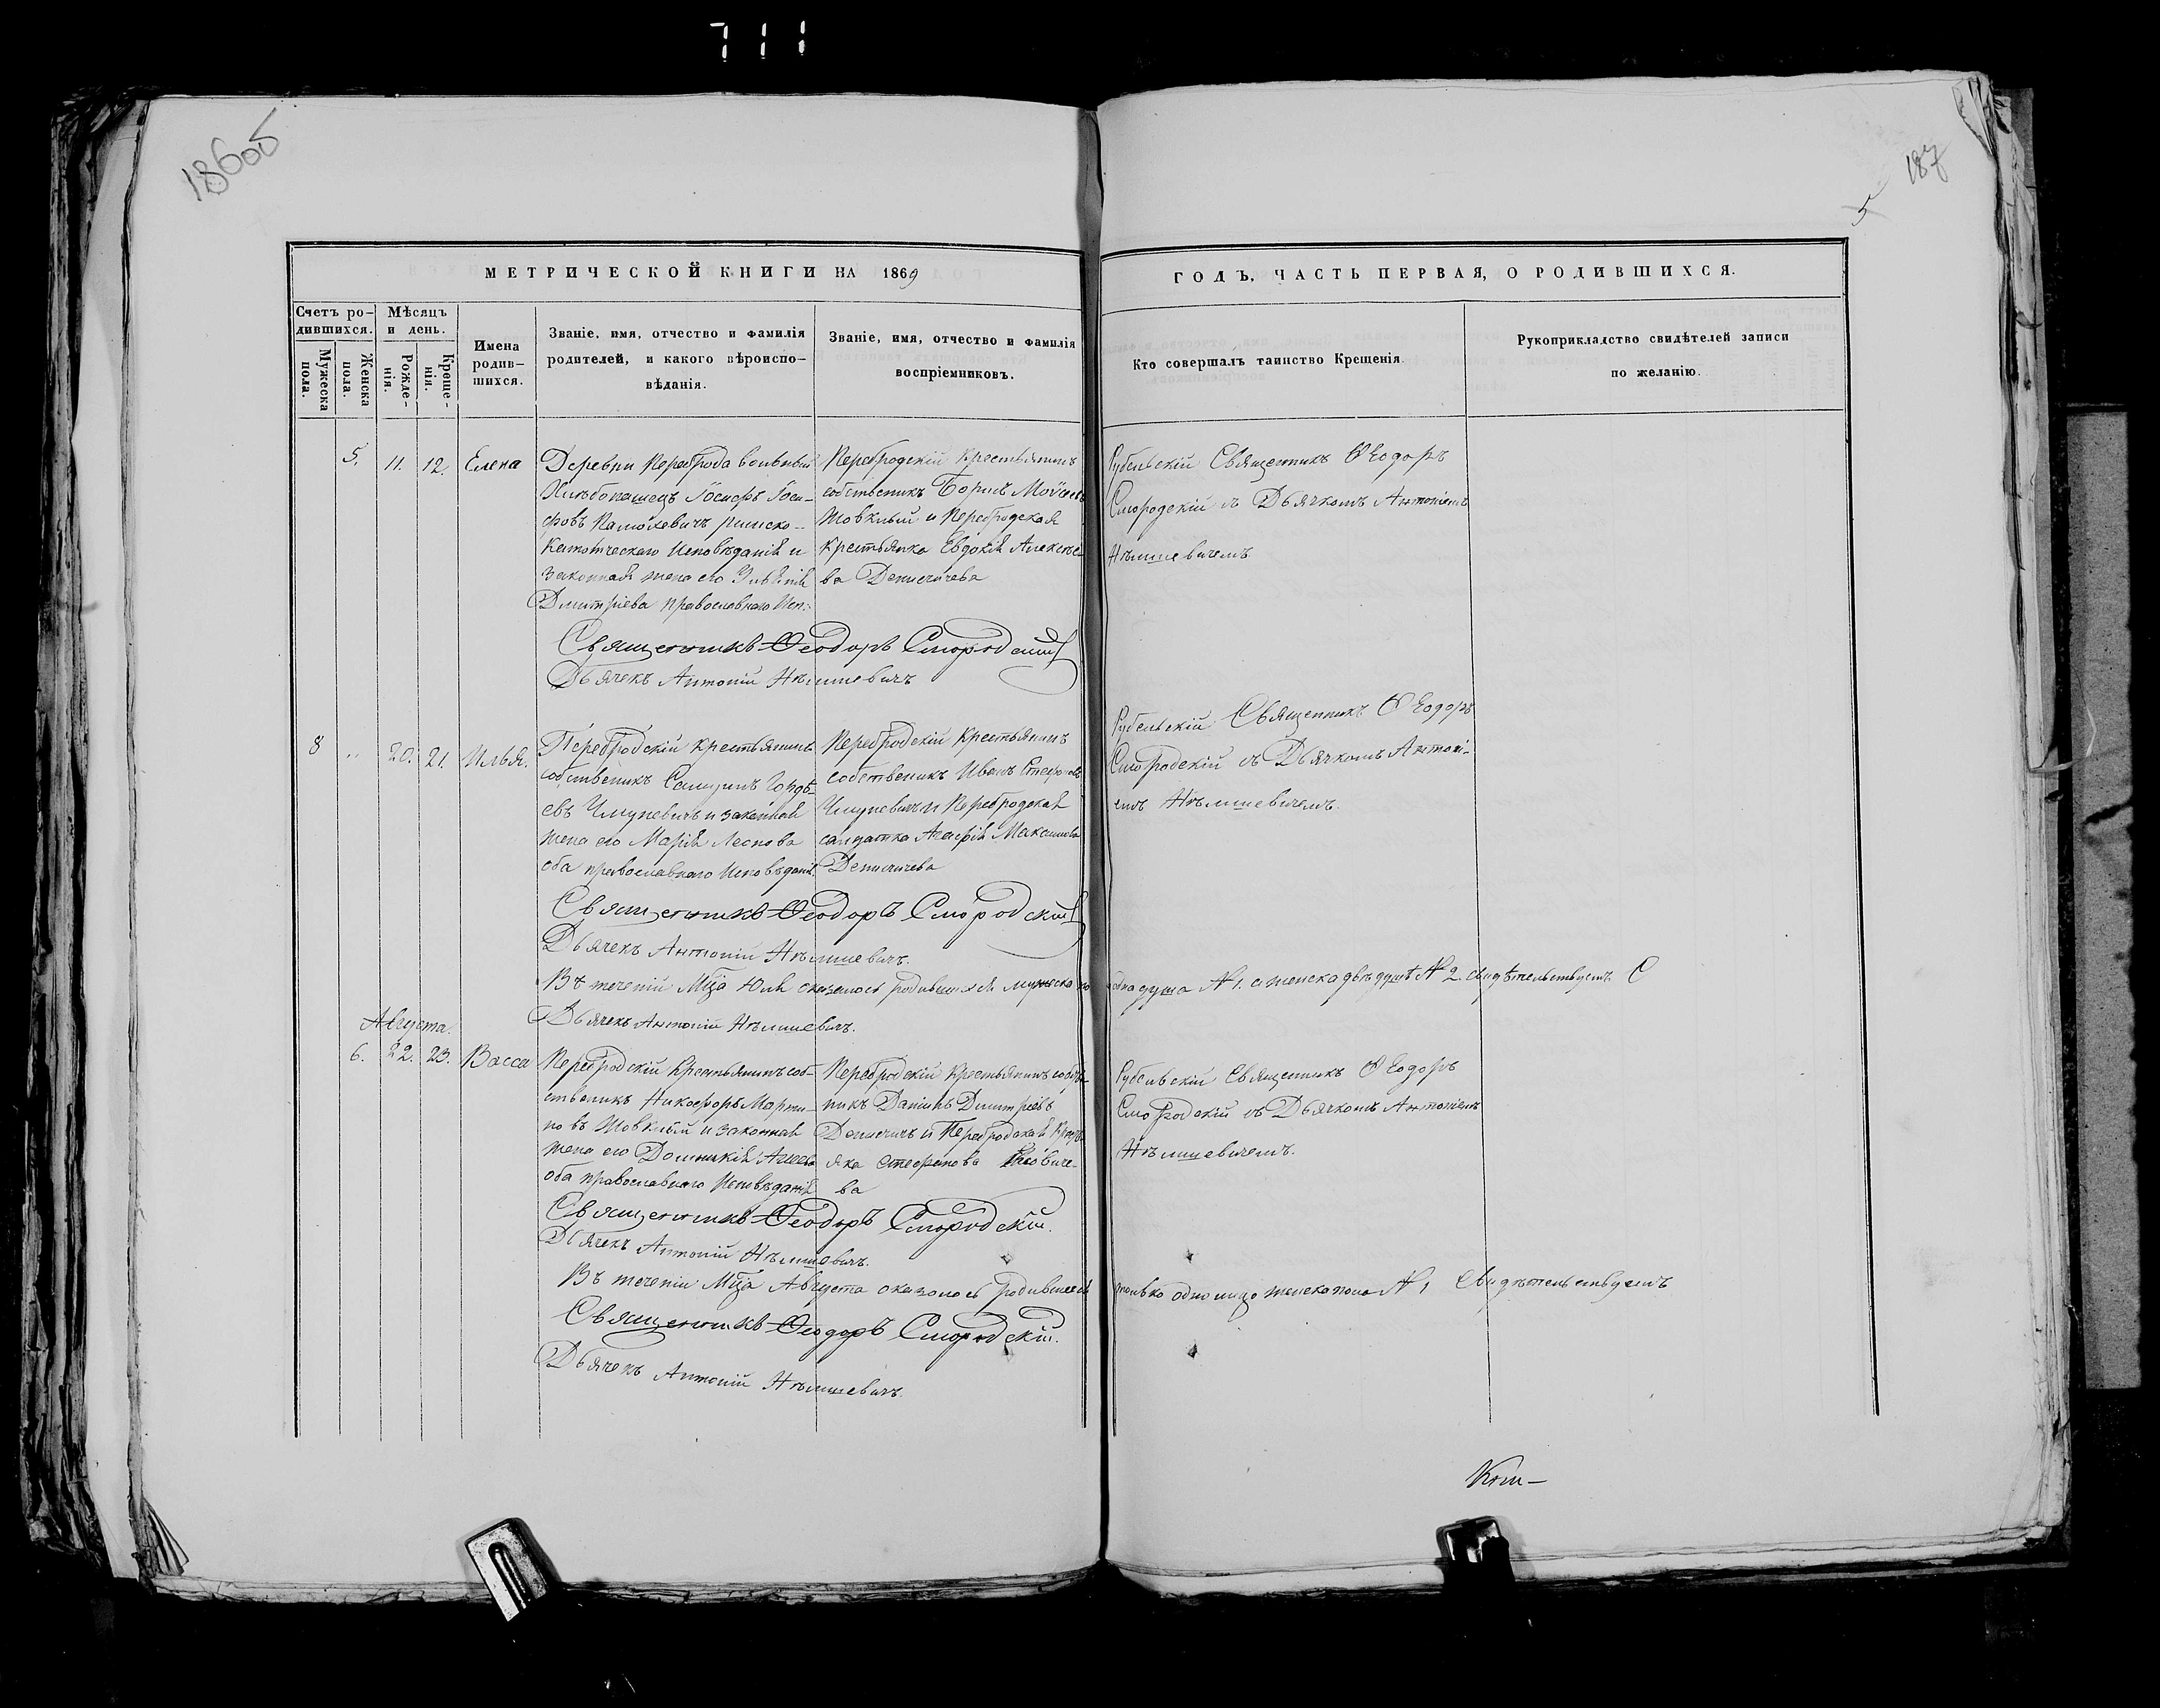 711
186об
187
5
МЕТРИЧЕСКОЙ КНИГИ НА 1869
ГОДЪ, ЧАСТЬ ПЕРВАЯ, О РОДИВШИХСЯ.
Счетъ ро-
дившихся.
Мужеска
пола.
Женска
пола.
Мѣсяцъ
и день.
Рожде-
нія.
Креще-
нія.
Имена
родив-
шихся.
Званіе, имя, отчество и фамилія
родителей, и какого вѣроиспо-
вѣданія.
Званіе, имя, отчество и фамилія
воспріемниковъ.
Кто совершалъ таинство Крещенія.
Рукоприкладство свидѣтелей записи
по желанію.
5. 11. 12. Елена
Деревни Переброда вольный
Хлѣбопашецъ Іосифъ Іоси-
фовъ римско-
Католическаго Исповѣданія и
законная жена его
Дмитріева православнаго Исп:
Перебродскій Крестьянинъ
собственникъ Борисъ Моѵсеевъ
Жовклый и Перебродская
Крестьянка Евдокія Алексѣе-
ва Денисичева
Рубельскій Священникъ Ѳеодоръ
Смородскій съ Дьячкомъ Антоніемъ
Нѣмшевичемъ
Священникъ Ѳеодоръ Смородскій
Дьячекъ Антоній Нѣмшевичъ
8 „ 20. 21. Илья.
Перебродскій Крестьянинъ
собственикъ Самуилъ Гордѣ-
евъ Чмуневичъ и законная
жена его Марія Леонова
оба православнаго Исповѣданія.
Перебродскій Крестьянинъ
собственникъ Иванъ Стефановъ
Чмуневичъ и Перебродская
салдатка Агафія Максимова
Денисичева
Рубельскій Священникъ Ѳеодоръ
Смородскій съ Дьячкомъ Антоні-
емъ Нѣмшевичемъ.
Священникъ Ѳеодоръ Смородскій
Дьячекъ Антоній Нѣмшевичъ.
Въ теченіи Мца Юля оказалось родившихся мужеска по
одна душа № 1. а женска двѣ души № 2. свидѣтельствуемъ. С
Дьячекъ Антоній Нѣмшевичъ.
Августа.
6. 22. 23. Васса
Перебродскій Крестьянинъ соб-
ственикъ Никофоръ Марти-
новъ Жовклый и законная
жена его Домникія
оба православнаго Исповѣданія
Перебродскій Крестьянинъ собстве-
никъ Даніилъ Дмитріевъ
Денисичъ и Перебродская
Стефанова
ва
Рубельскій Священникъ Ѳеодоръ
Смородскій съ Дьячкомъ Антоніемъ
Нѣмшевичемъ.
Священникъ Ѳеодоръ Смородскій.
Дьячекъ Антоній Нѣмшевичъ.
Въ теченіи Мца Августа оказалось родившееся
только одно лицо женска пола № 1 Свидѣтельствуемъ
Священникъ Ѳеодоръ Смородскій.
Дьячекъ Антоній Нѣмшевичъ.